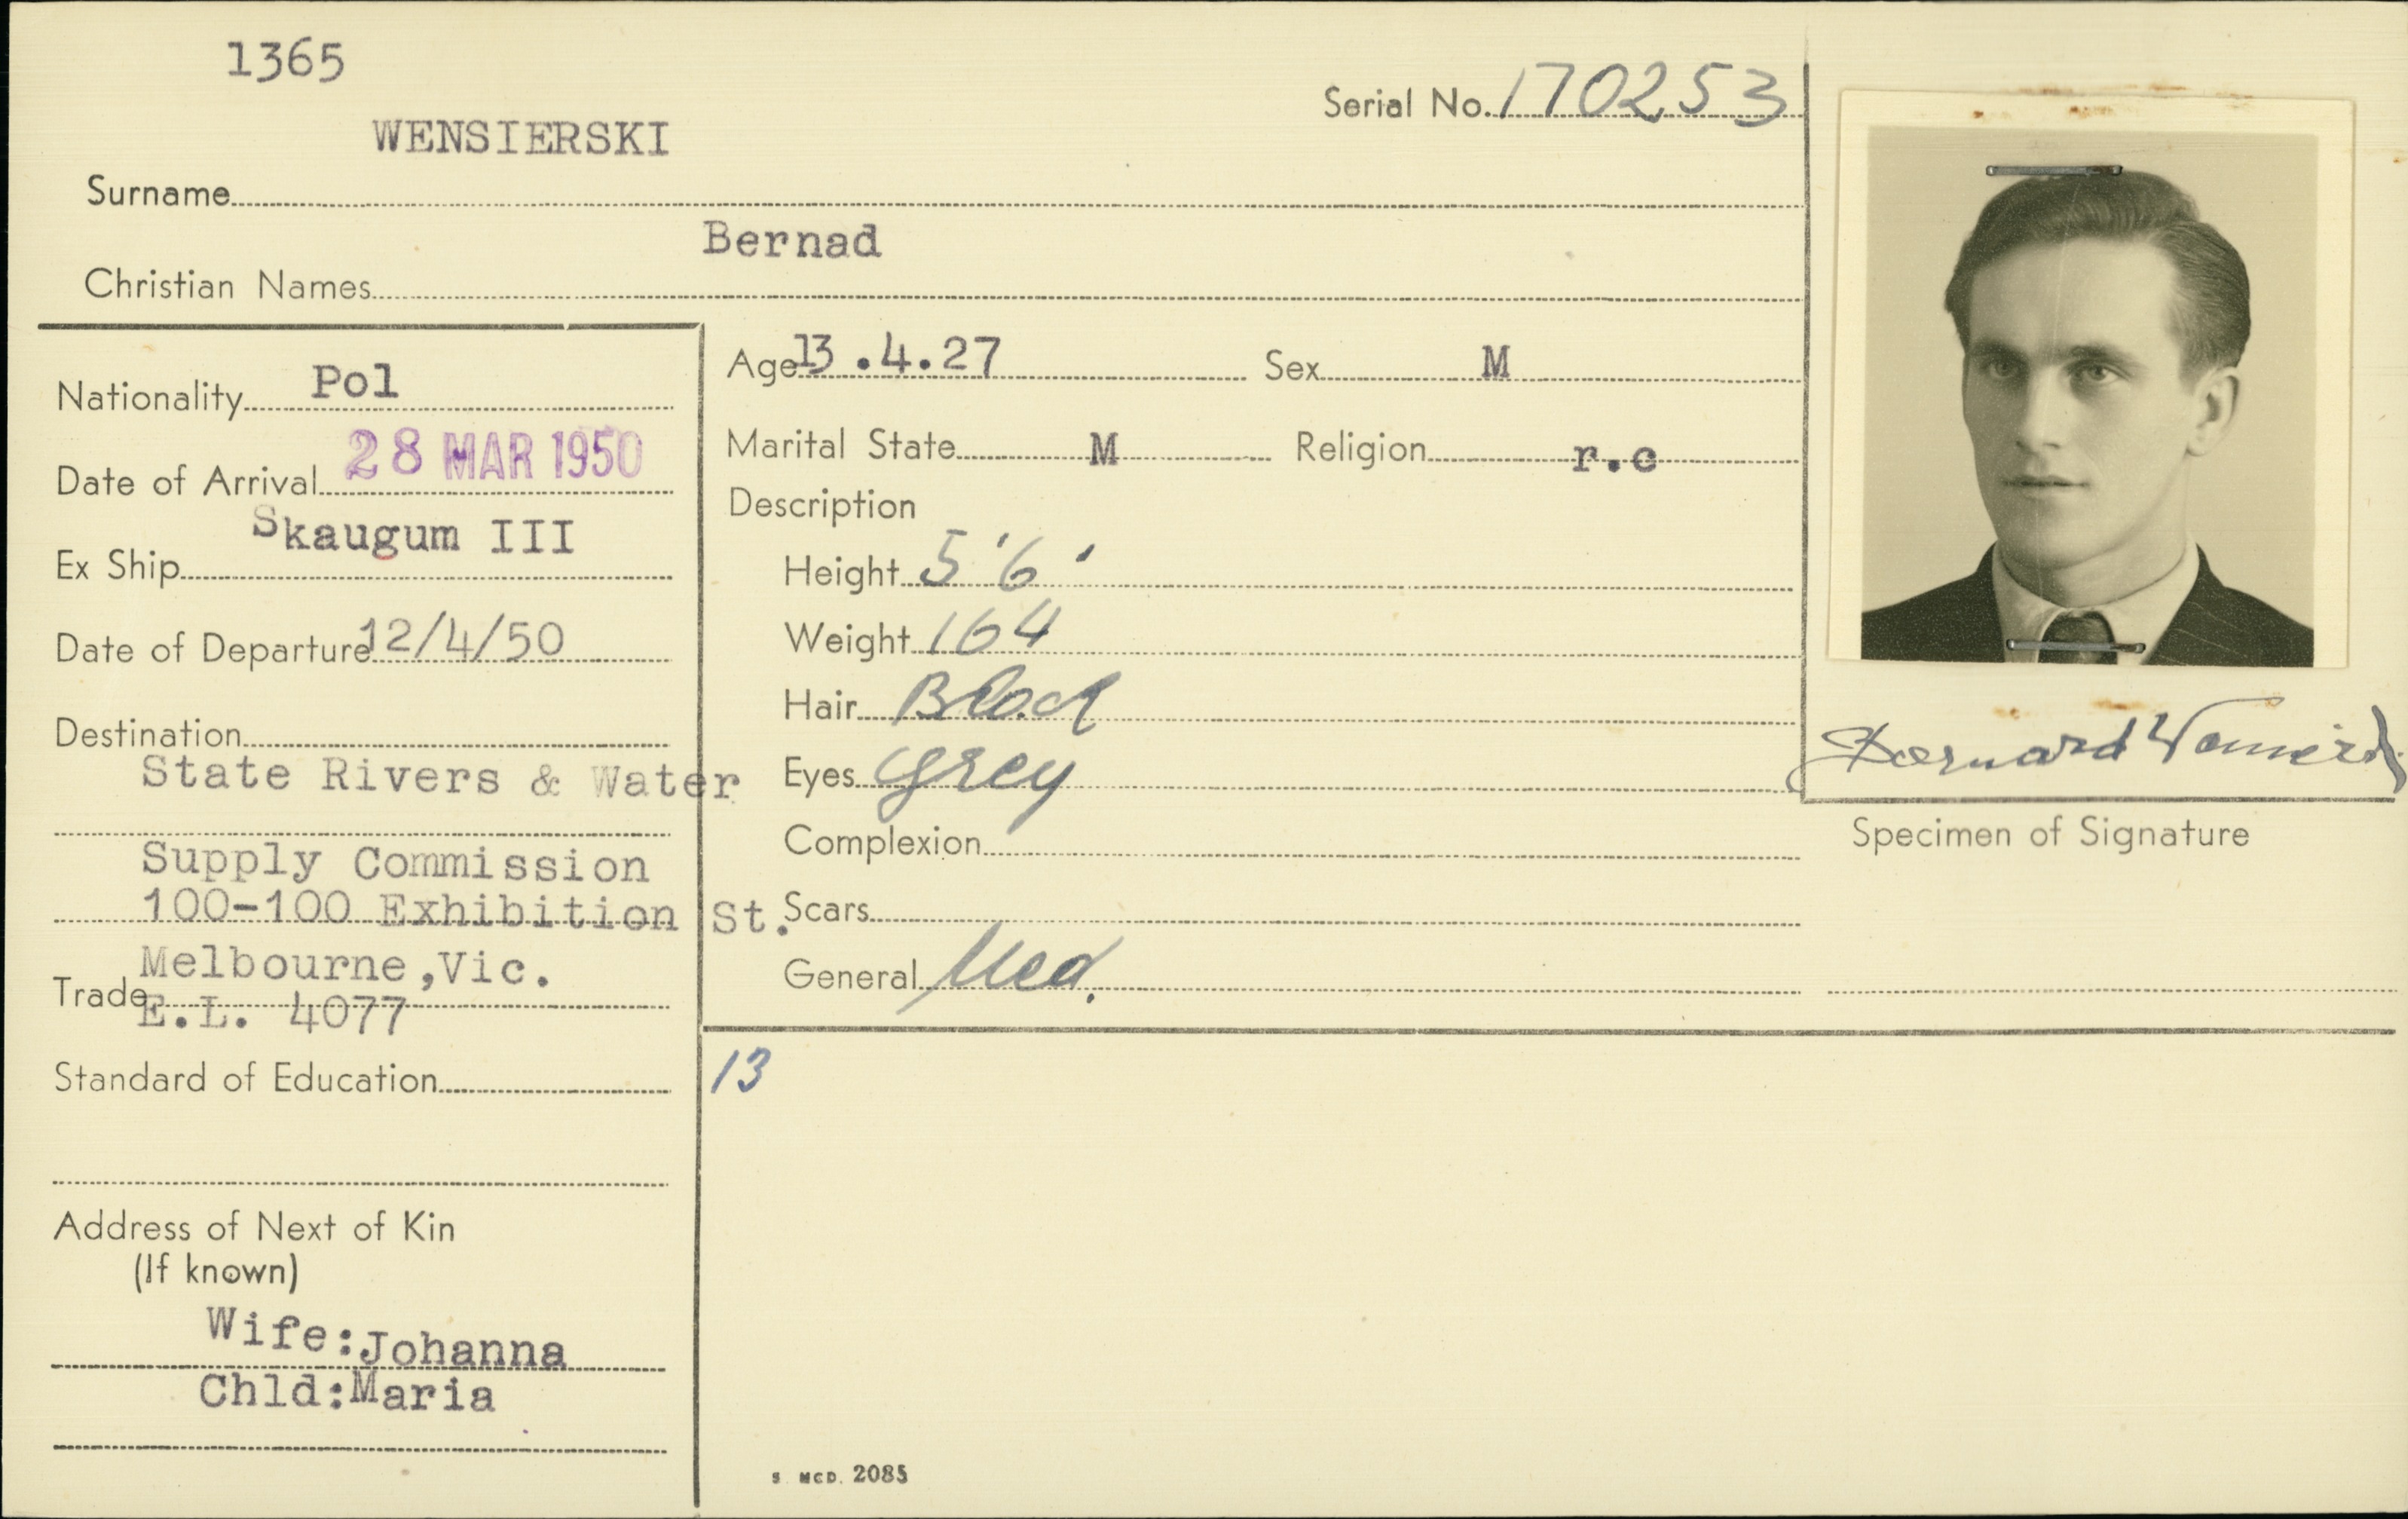 1365
Serial No. 170253
WENSIERSKI
Surname
Bernad
Christian Names
Nationality Pol
Date of Arrival 28 MAR 1950
Ex Ship Skaugum III
Date of Departure 12/4/50
Destination
State Rivers & Water
Supply Commission
100-100 Exhibition St.
Melbourne,Vic.
Trade
E.L. 4077
Standard of Education
Address of Next of Kin
(If known)
Wife:Johanna
Chld:Maria
Age 13.4.27 Sex M
Marital State M Religion r.c
Description
Height 5'6'
Weight 164
Hair Black
Eyes grey
Complexion
Scars
General Med.
13
S MCD. 2085
Bernard
Specimen of Signature